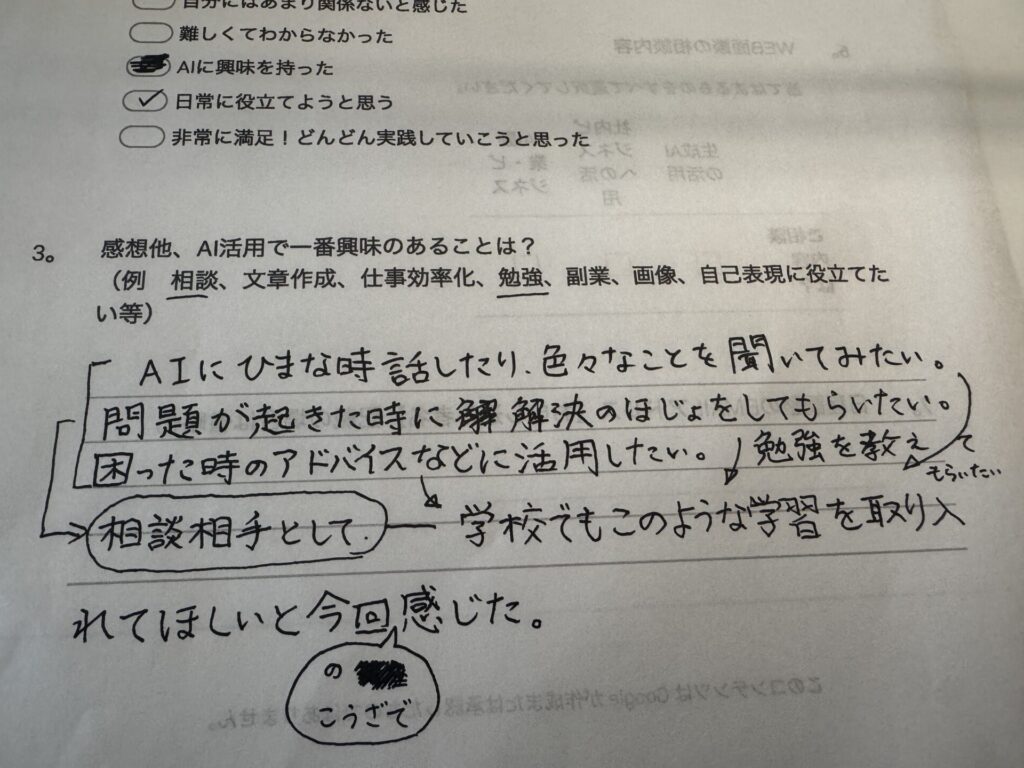 自分にはあまり関係ないと感じた
難しくてわからなかった
AIに興味を持った
日常に役立てようと思う
非常に満足！どんどん実践していこうと思った
3。 感想他、AI活用で一番興味のあることは？
（例 相談、文章作成、仕事効率化、勉強、副業、画像、自己表現に役立てた
い等）
AIにひまな時話したり、色々なことを聞いてみたい。
問題が起きた時に解決のほじょをしてもらいたい。
困った時のアドバイスなどに活用したい。 勉強を教えて
もらいたい
相談相手として. 学校でもこのような学習を取り入
れてほしいと今回感じた。
の
こうざで